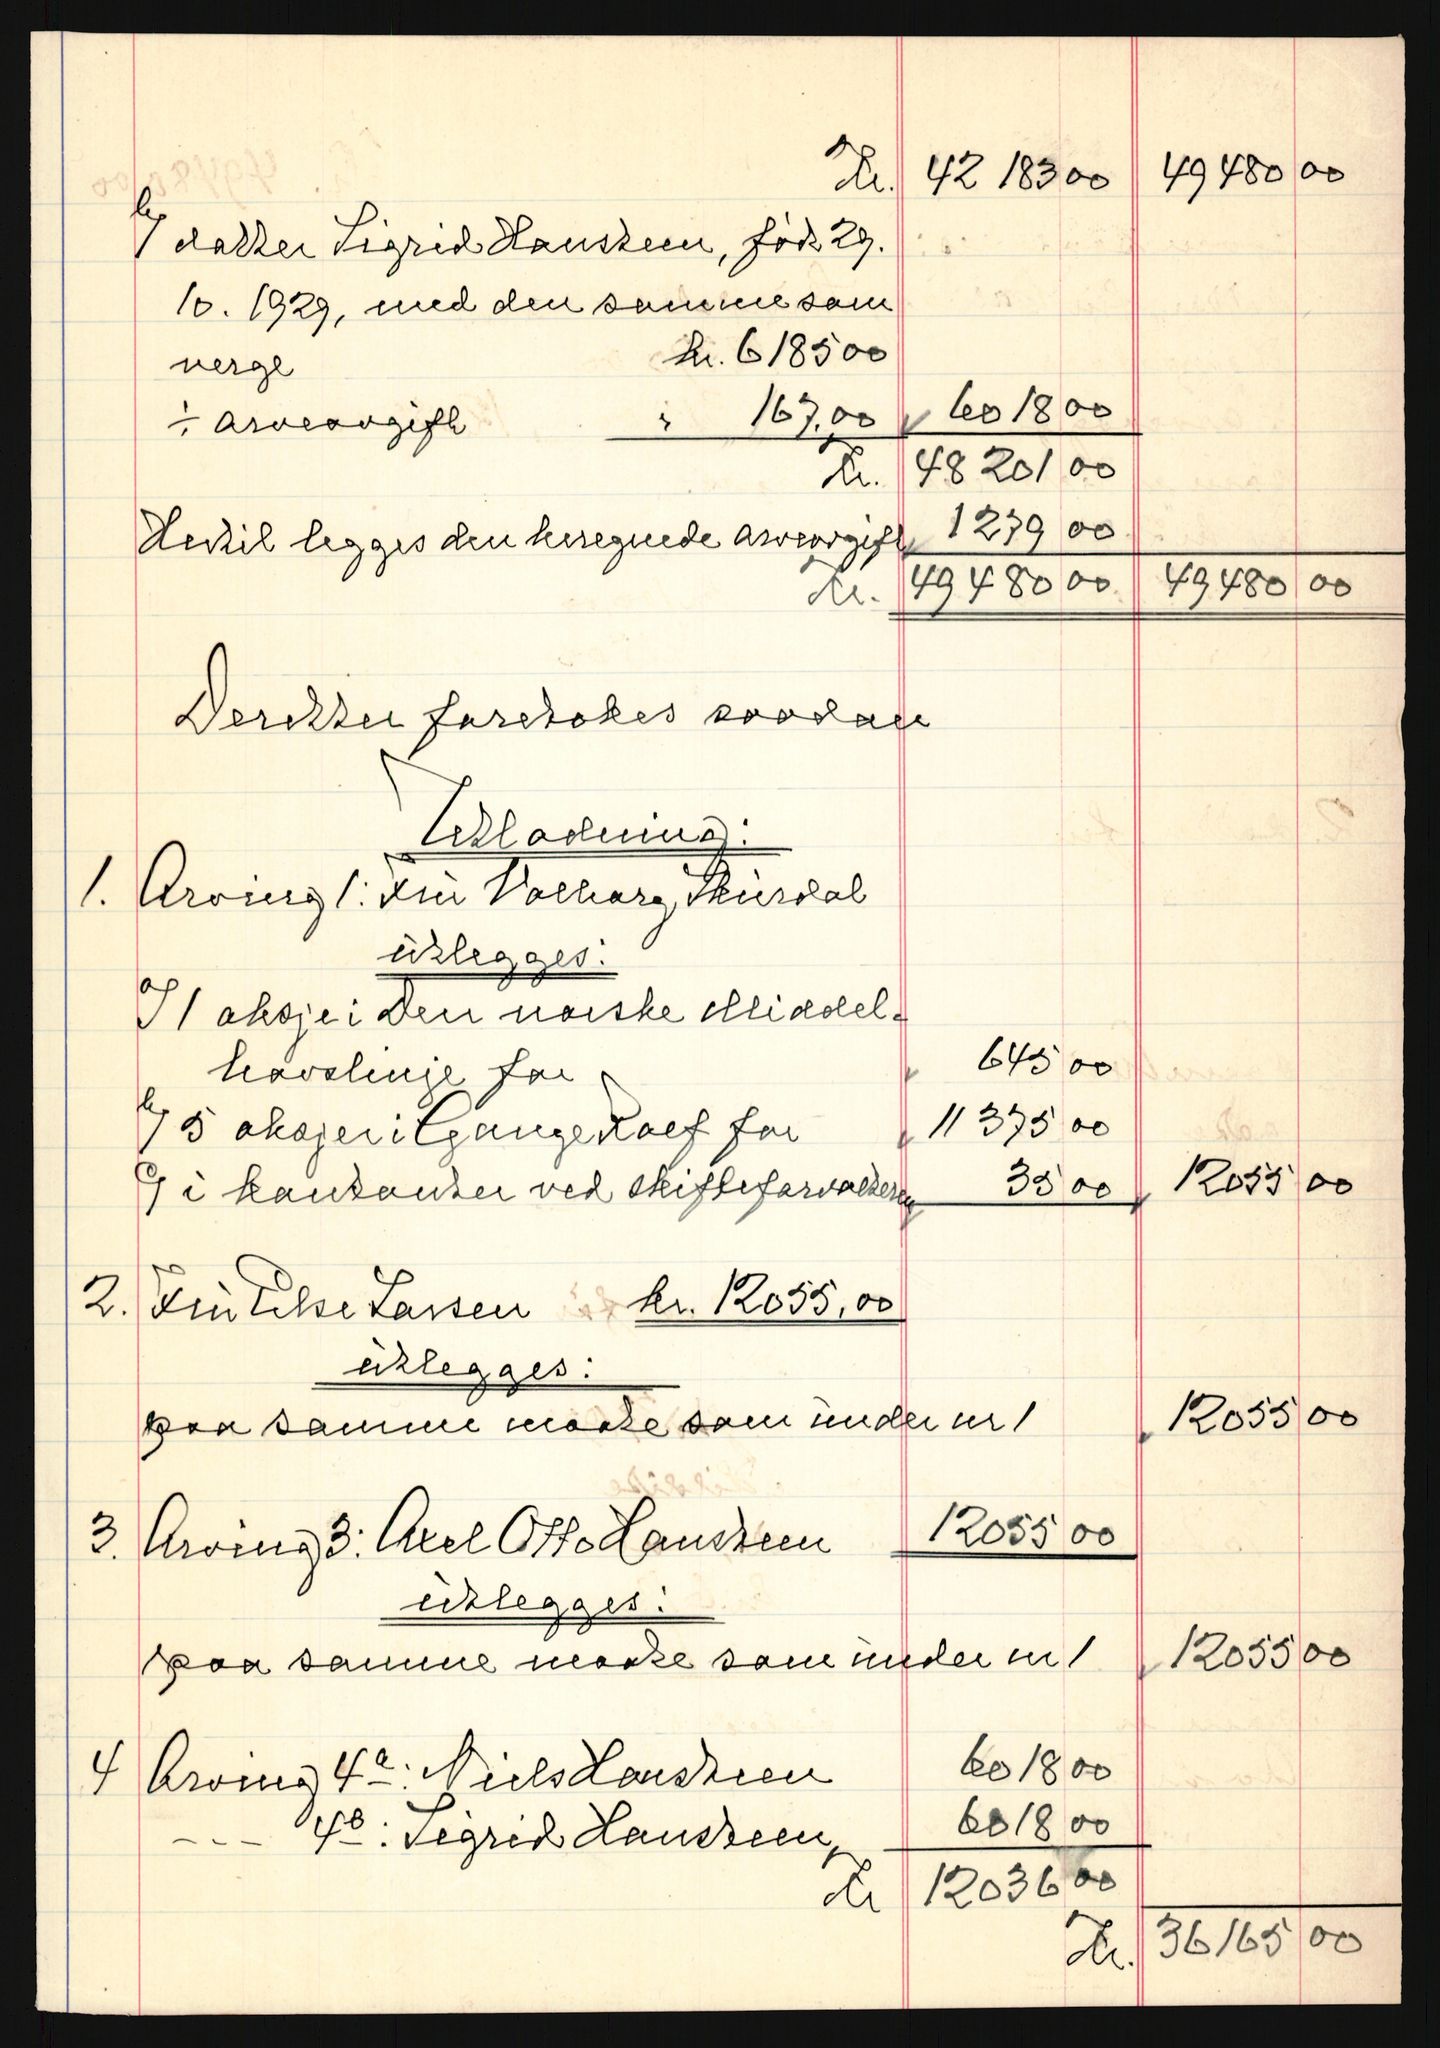 Kr. 42 183 00 49 480 00
b/ datter Sigrid Hansteen, født 29.
10. 1929, med den samme som
verge kr. 6 185 00
÷ arveavgift " 167,00 6018 00
Kr. 48 201 00
Hertil legges den beregnede arveavgift 1279 00
Kr. 49 480 00 49 480 00
Deretter foretokes saadan
Utlodning:
1. Arving 1: Fru Valborg Skurdal
utlegges:
a/ 1 aksje i Den norske Middel-
havslinje for 645 00
b/ 5 aksjer i Gange Rolf for 11 375 00
c/ i kontanter ved skifteforvalteren 35 00 12055 00
2. Fru Else Lassen kr. 12055,00
utlegges:
paa samme maate som under nr 1 12055 00
3. Arving 3: Axel Otto Hansteen 12055 00
utlegges:
paa samme maate som under nr 1 12055 00
4 Arving 4a: Niels Hansteen 6018 00
- - - 4b: Sigrid Hansteen, 6018 00
Kr 12036 00
Kr. 36165 00